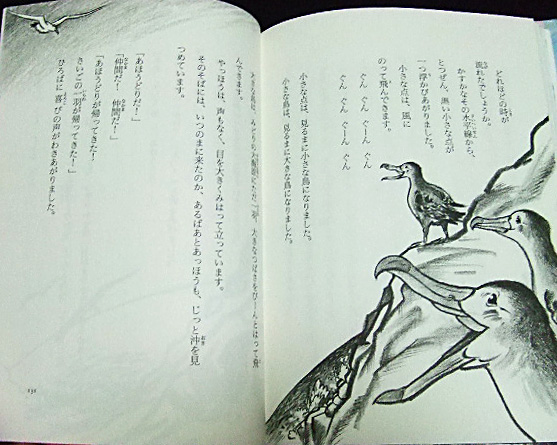 どれほどの時が
流れたでしょうか。
かすかなその水平線から、
とつぜん、黒い小さな点が
一つ浮かびあがりました。
小さな点は、風に
のって飛んできます。
ぐん ぐん ぐーん ぐん
ぐん ぐん ぐーん ぐん
小さな点は、見るまに小さな鳥になりました。
小さな鳥は、見るまに大きな鳥になりました。
大きなつばさをぴーんとはって飛
んできます。
やっほうは、声もなく、目を大きくみはって立っています。
そのそばには、いつのまに来たのか、あるばあとあっほうも、じっと沖を見
つめています。
「あほうどりだ！」
「仲間だ！ 仲間だ！」
「あほうどりが帰ってきた！
さいごの一羽が帰ってきた！」
ひろばに喜びの声がわきあがりました。
131